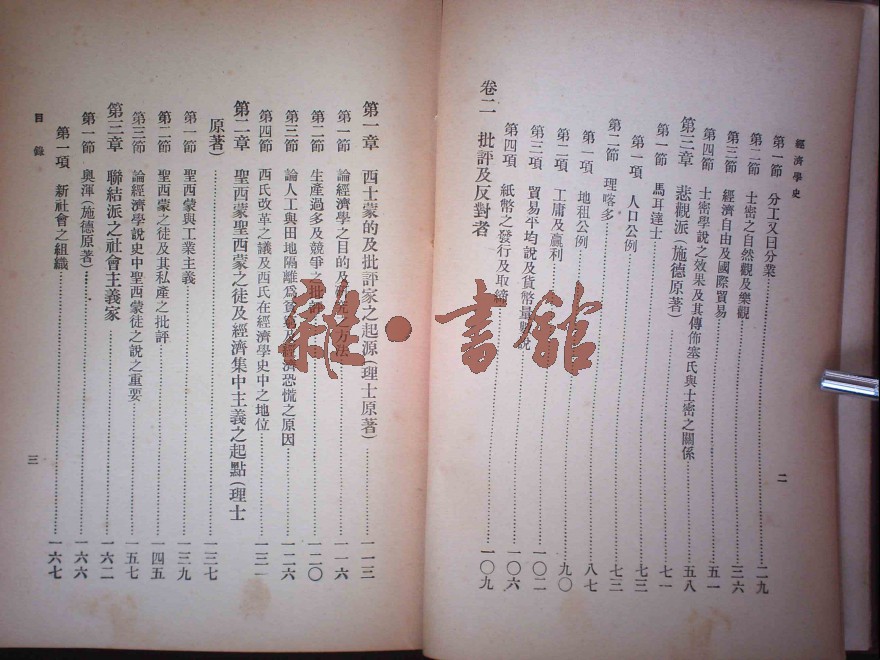 經濟學史
第一節 分工又曰分業 二九
第二節 士密之自然觀及樂觀
第三節 經濟自由及國際貿易 三六
第四節 士密學說之效果及其傳佈塞氏與士密之關係 五一
第三章 悲觀派(施德原著) 五八
第一節 馬耳達士 七一
第一項 人口公例 七三
第二節 理喀多 七三
第一項 地租公例 八七
第二項 工庸及贏利 九〇
第三項 貿易平均說及貨幣量說 一〇二
第四項 紙幣之發行及取締 一〇六
卷二 批評及反對者 一〇九
二
第一章 西士蒙的及批評家之起源(理士原著) 一一三
第一節 論經濟學之目的及研究之方法 一一六
第二節 生產過多及競爭之批評 一二〇
第三節 論人工與田地隔離為貧窮及經濟恐慌之原因 一二六
第四節 西氏改革之議及西氏在經濟學史中之地位 一三一
第二章 聖西蒙聖西蒙之徒及經濟集中主義之起點(理士
原著) 一三七
第一節 聖西蒙與工業主義 一三九
第二節 聖西蒙之徒及其私產之批評 一四五
第三節 論經濟學說史中聖西蒙徒之說之重要 一五七
第三章 聯結派之社會主義家 一六二
第一節 奧渾(施德原著) 一六六
第一項 新社會之組織 一六七
目錄
三
雜·書館